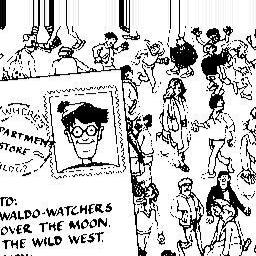 DEPARTMENT
STORE
TO:
WALDO-WATCHERS
OVER THE MOON,
THE WILD WEST,